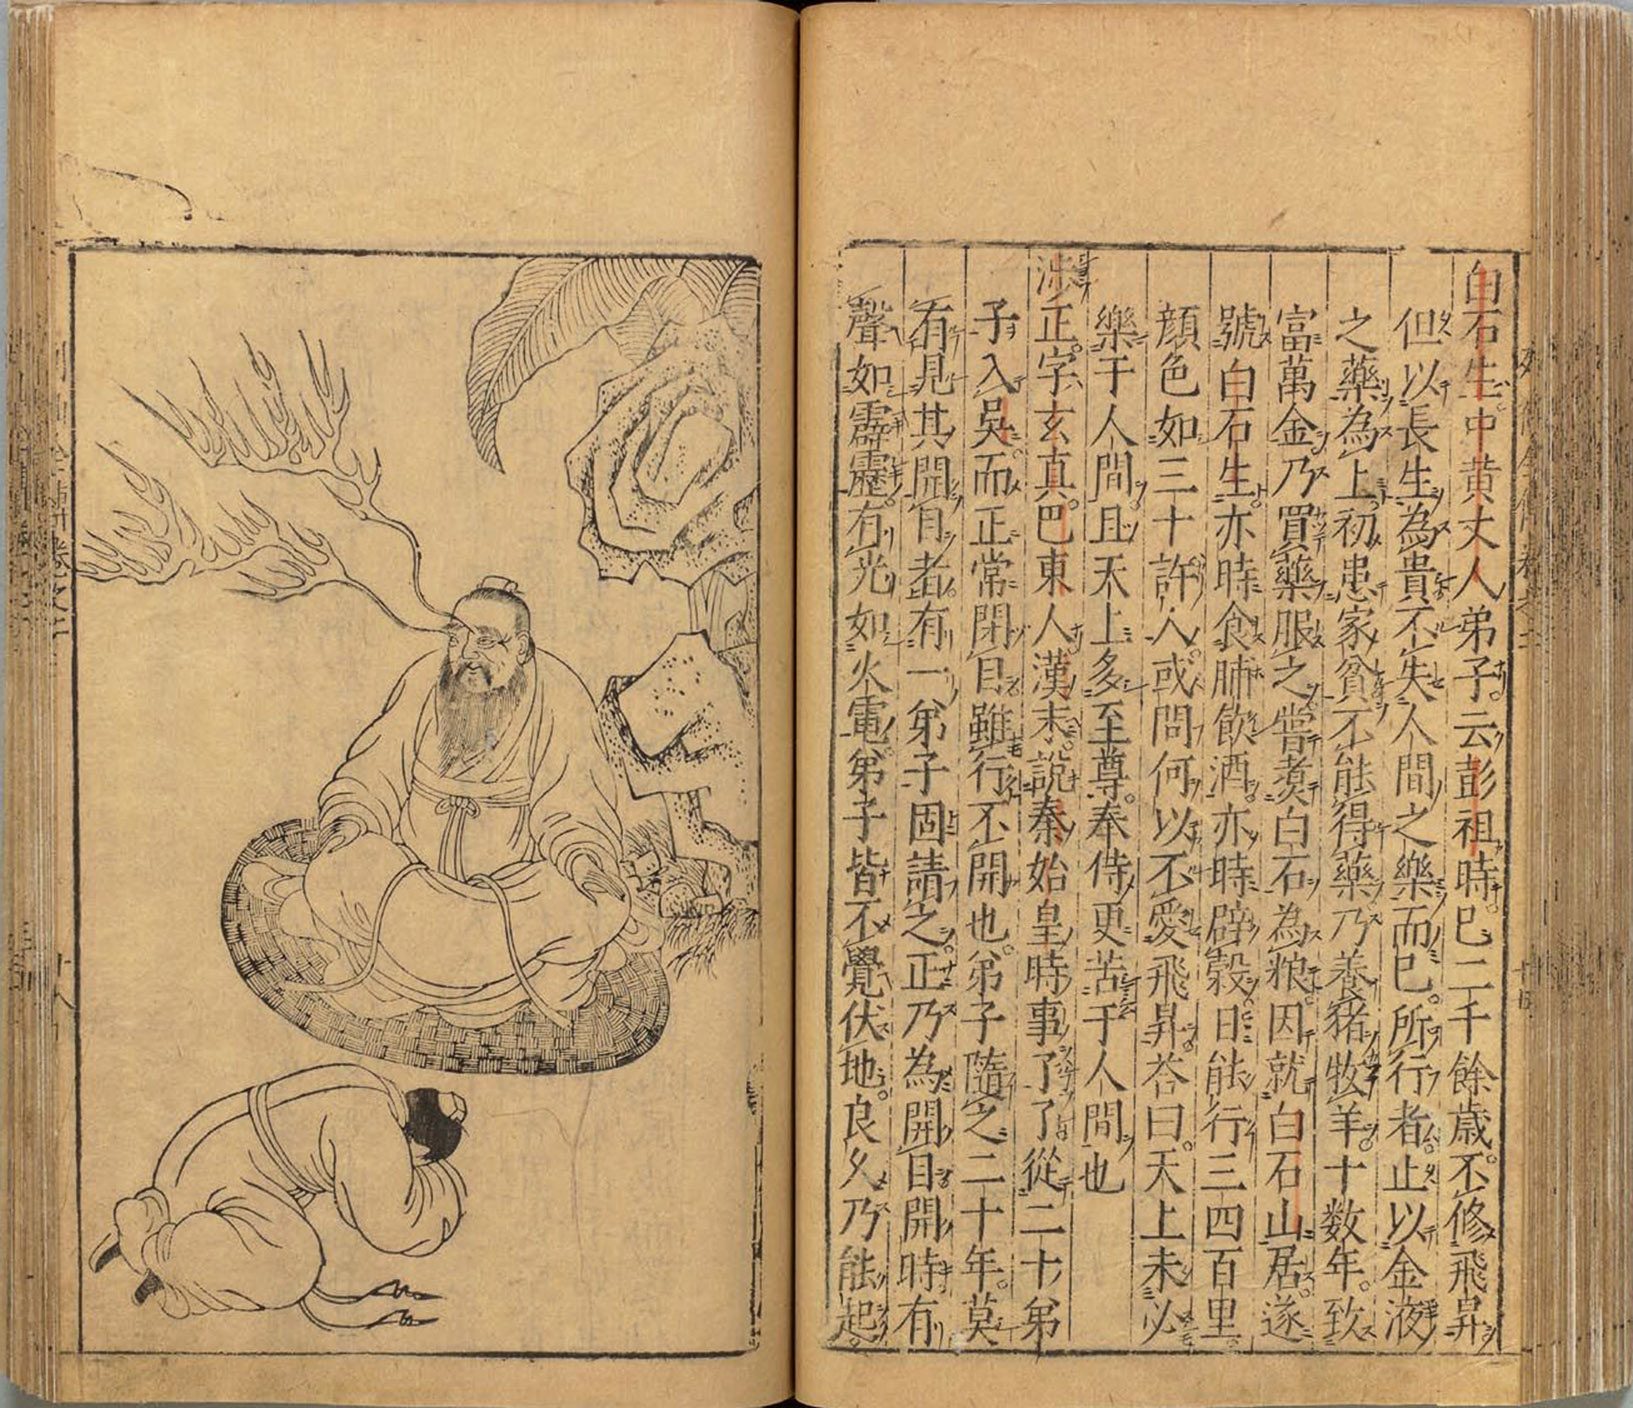 白石生中黃丈人弟子云彭祖時已二千餘歲不修飛昇
但以長生為貴不失人間之樂而已所行者止以金液
之藥為上初患家貧不能得藥乃養猪牧羊十数年致
富萬金乃買藥服之嘗煮白石為粮因就白石山居遂
號白石生亦時食脯飲酒亦時辟穀日能行三四百里
顏色如三十許人或問何以不愛飛昇答曰天上未必
樂于人間且天上多至尊奉侍更苦于人間也
涉正字玄真巴東人漢末說秦始皇時事了了從二十弟
子入吳而正常閉目雖行不開也弟子隨之二十年莫
有見其開目者有一弟子固請之正乃為開目開時有
聲如霹靂有光如火電弟子皆不覺伏地良久乃能起